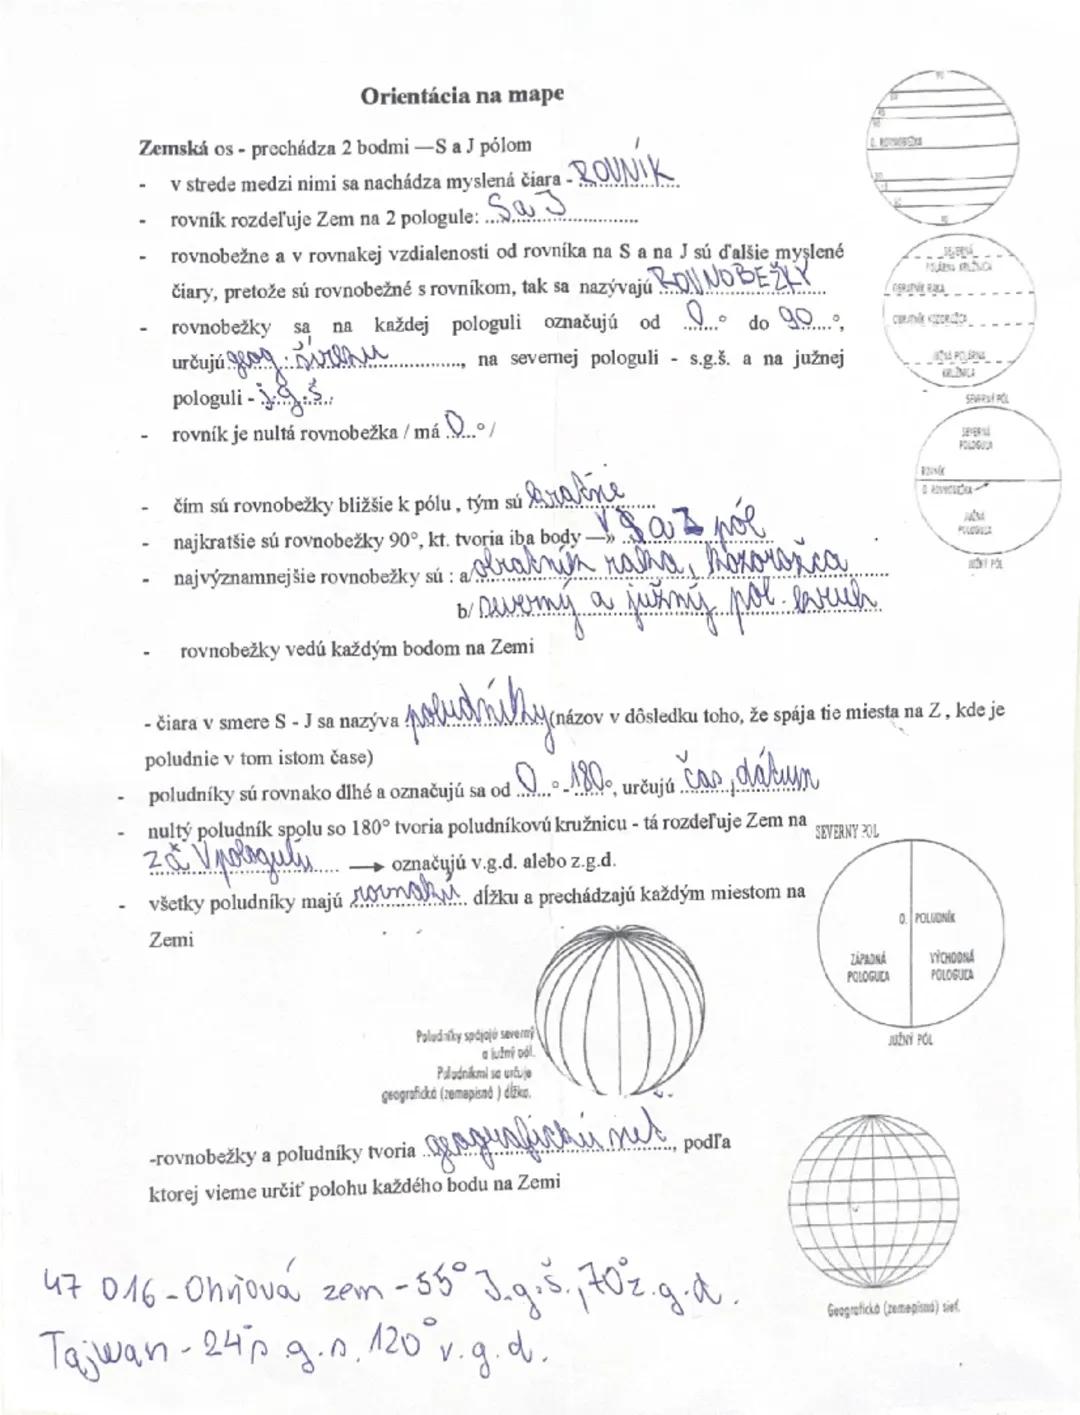 Orientácia na mape
Zemská os - prechádza 2 bodmi — S a J pólom
- v strede medzi nimi sa nachádza myslená čiara - ROVNÍK
- rovník rozdeľuje Zem na 2 pologule: S a J
- rovnobežne a v rovnakej vzdialenosti od rovníka na S a na J sú ďalšie myslené
čiary, pretože sú rovnobežné s rovníkom, tak sa nazývajú ROVNOBEŽKY
- rovnobežky sa na každej pologuli označujú od 0° do 90°,
určujú geog. šírku, na severnej pologuli - s.g.š. a na južnej
pologuli - j.g.š.
- rovník je nultá rovnobežka / má 0° /
- čím sú rovnobežky bližšie k pólu, tým sú kratšie
- najkratšie sú rovnobežky 90°, kt. tvoria iba body —» S a J pól
- najvýznamnejšie rovnobežky sú : a/ obratník raka, kozorožca
b/ severný a južný pol. kruh
- rovnobežky vedú každým bodom na Zemi
- čiara v smere S - J sa nazýva poludníky (názov v dôsledku toho, že spája tie miesta na Z, kde je
poludnie v tom istom čase)
- poludníky sú rovnako dlhé a označujú sa od 0° - 180°, určujú čas, dátum
- nultý poludník spolu so 180° tvoria poludníkovú kružnicu - tá rozdeľuje Zem na
Z a V pologuľu → označujú v.g.d. alebo z.g.d.
- všetky poludníky majú rovnakú dĺžku a prechádzajú každým miestom na
Zemi
-rovnobežky a poludníky tvoria geografickú sieť, podľa
ktorej vieme určiť polohu každého bodu na Zemi
47 016 - Ohňová zem - 55° J.g.š., 70° z.g.d.
Tajwan - 24° s.g.š. 120° v.g.d.
0. ROVNOBEŽKA
SEVERNÁ
POLÁRNA KRUŽNICA
OBRATNÍK RAKA
OBRATNÍK KOZOROŽCA
JUŽNÁ POLÁRNA
KRUŽNICA
SEVERNÝ PÓL
SEVERNÁ
POLOGUĽA
ROVNÍK
0. ROVNOBEŽKA
JUŽNÁ
POLOGUĽA
JUŽNÝ PÓL
SEVERNÝ PÓL
0. POLUDNÍK
ZÁPADNÁ
POLOGUĽA
VÝCHODNÁ
POLOGUĽA
JUŽNÝ PÓL
Poludníky spájajú severný
a južný pól.
Poludníkmi sa určuje
geografická (zemepisná) dĺžka.
Geografická (zemepisná) sieť.